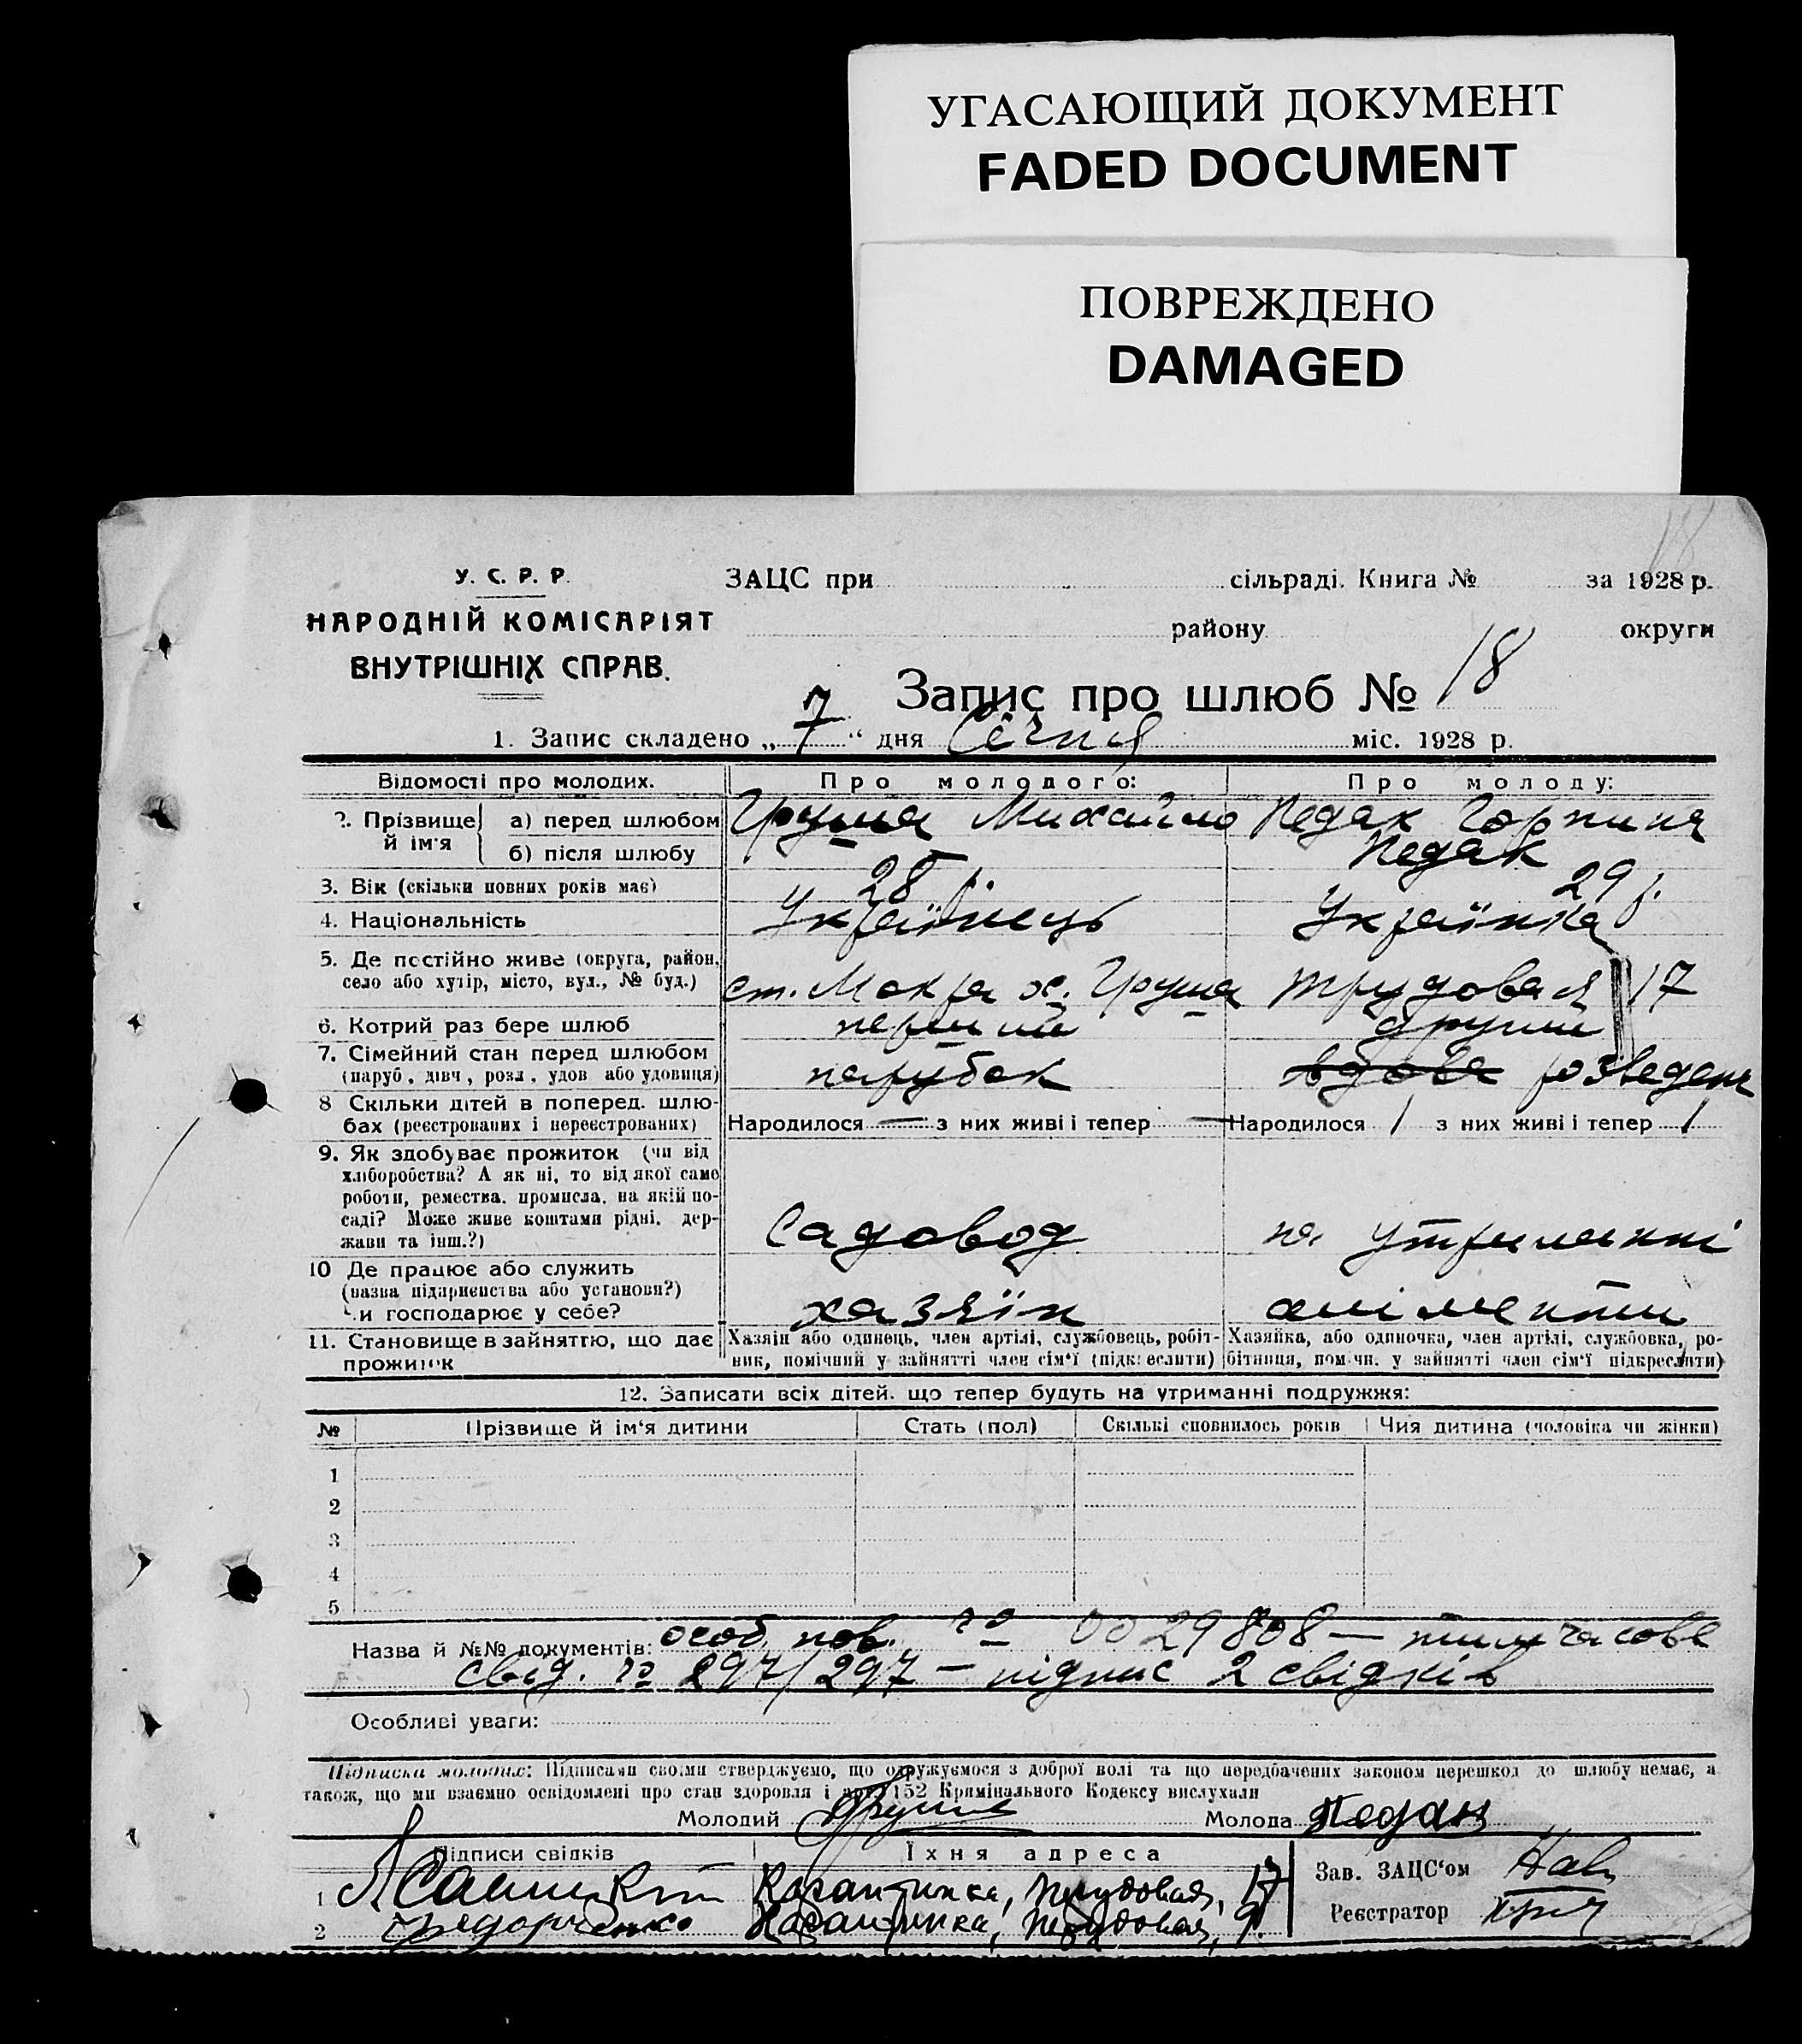 УГАСАЮЩИЙ ДОКУМЕНТ
FADED DOCUMENT
ПОВРЕЖДЕНО
DAMAGED
18
У. С. Р. Р.
НАРОДНІЙ КОМІСАРІЯТ
ВНУТРІШНІХ СПРАВ.
ЗАЦС при сільраді. Книга № за 1928 р.
району округи
Запис про шлюб № 18
1. Запис складено „7“ дня Січня міс. 1928 р.
Відомості про молодих. Про молодого: Про молоду:
2. Прізвище й ім'я
а) перед шлюбом Груша Михайло Педак Горпина
б) після шлюбу Педак
3. Вік (скільки повних років має) 28 р. 29 р.
4. Національність Українець Українка
5. Де постійно живе (округа, район, село або хутір, місто, вул., № буд.) ст. Мокра х. Груша Трудовая 17
6. Котрий раз бере шлюб перший другий
7. Сімейний стан перед шлюбом (паруб., дівч., розл., удов або удовиця) парубок вдова розведена
8 Скільки дітей в поперед. шлюбах (реєстрованих і нереєстрованих) Народилося — з них живі і тепер — Народилося 1 з них живі і тепер 1
9. Як здобуває прожиток (чи від
хліборобства? А як ні, то від якої саме
роботи, ремества, промисла, на якій по-
саді? Може живе коштами рідні, дер-
жави та інш.?) Садовод на утриманні
10 Де працює або служить
(назва підприємства або установи?)
Чи господарює у себе? хазяїн аліменти
11. Становище в зайняттю, що дає прожиток
Хазяїн або одинець, член артілі, службовець, робіт-
ник, помічний у зайнятті член сім'ї (підкреслити)
Хазяйка, або одиночка, член артілі, службовка, ро-
бітниця, помічн. у зайнятті член сім'ї підкреслити)
12. Записати всіх дітей, що тепер будуть на утриманні подружжя:
№ Прізвище й ім'я дитини Стать (пол) Скількі сповнилось років Чия дитина (чоловіка чи жінки)
1
2
3
4
5
Назва й №№ документів: особ. пов. № 0029808 — тимчасове
свід. № 297/297 — підпис 2 свідків
Особливі уваги:
Підписка молодих: Підписами своїми стверджуємо, що одружуємося з доброї волі та що передбачених законом перешкод до шлюбу немає, а
також, що ми взаємно освідомлені про стан здоровля і арт. 152 Крямінального Кодексу вислухали
Молодий Груша Молода Педак
Підписи свідків Їхня адреса
1 Трудовая, 17
2 Трудовая, 9.
Зав. ЗАЦС'ом
Реєстратор